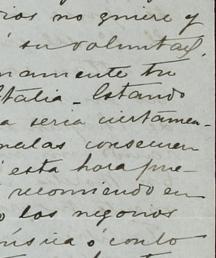 rios no quiere y
su voluntad.
namente tu
Italia - Estando
a seria ciertamen-
malas consecuen
esta hora pue-
recomiendo en
o los negocios
música ó con lo